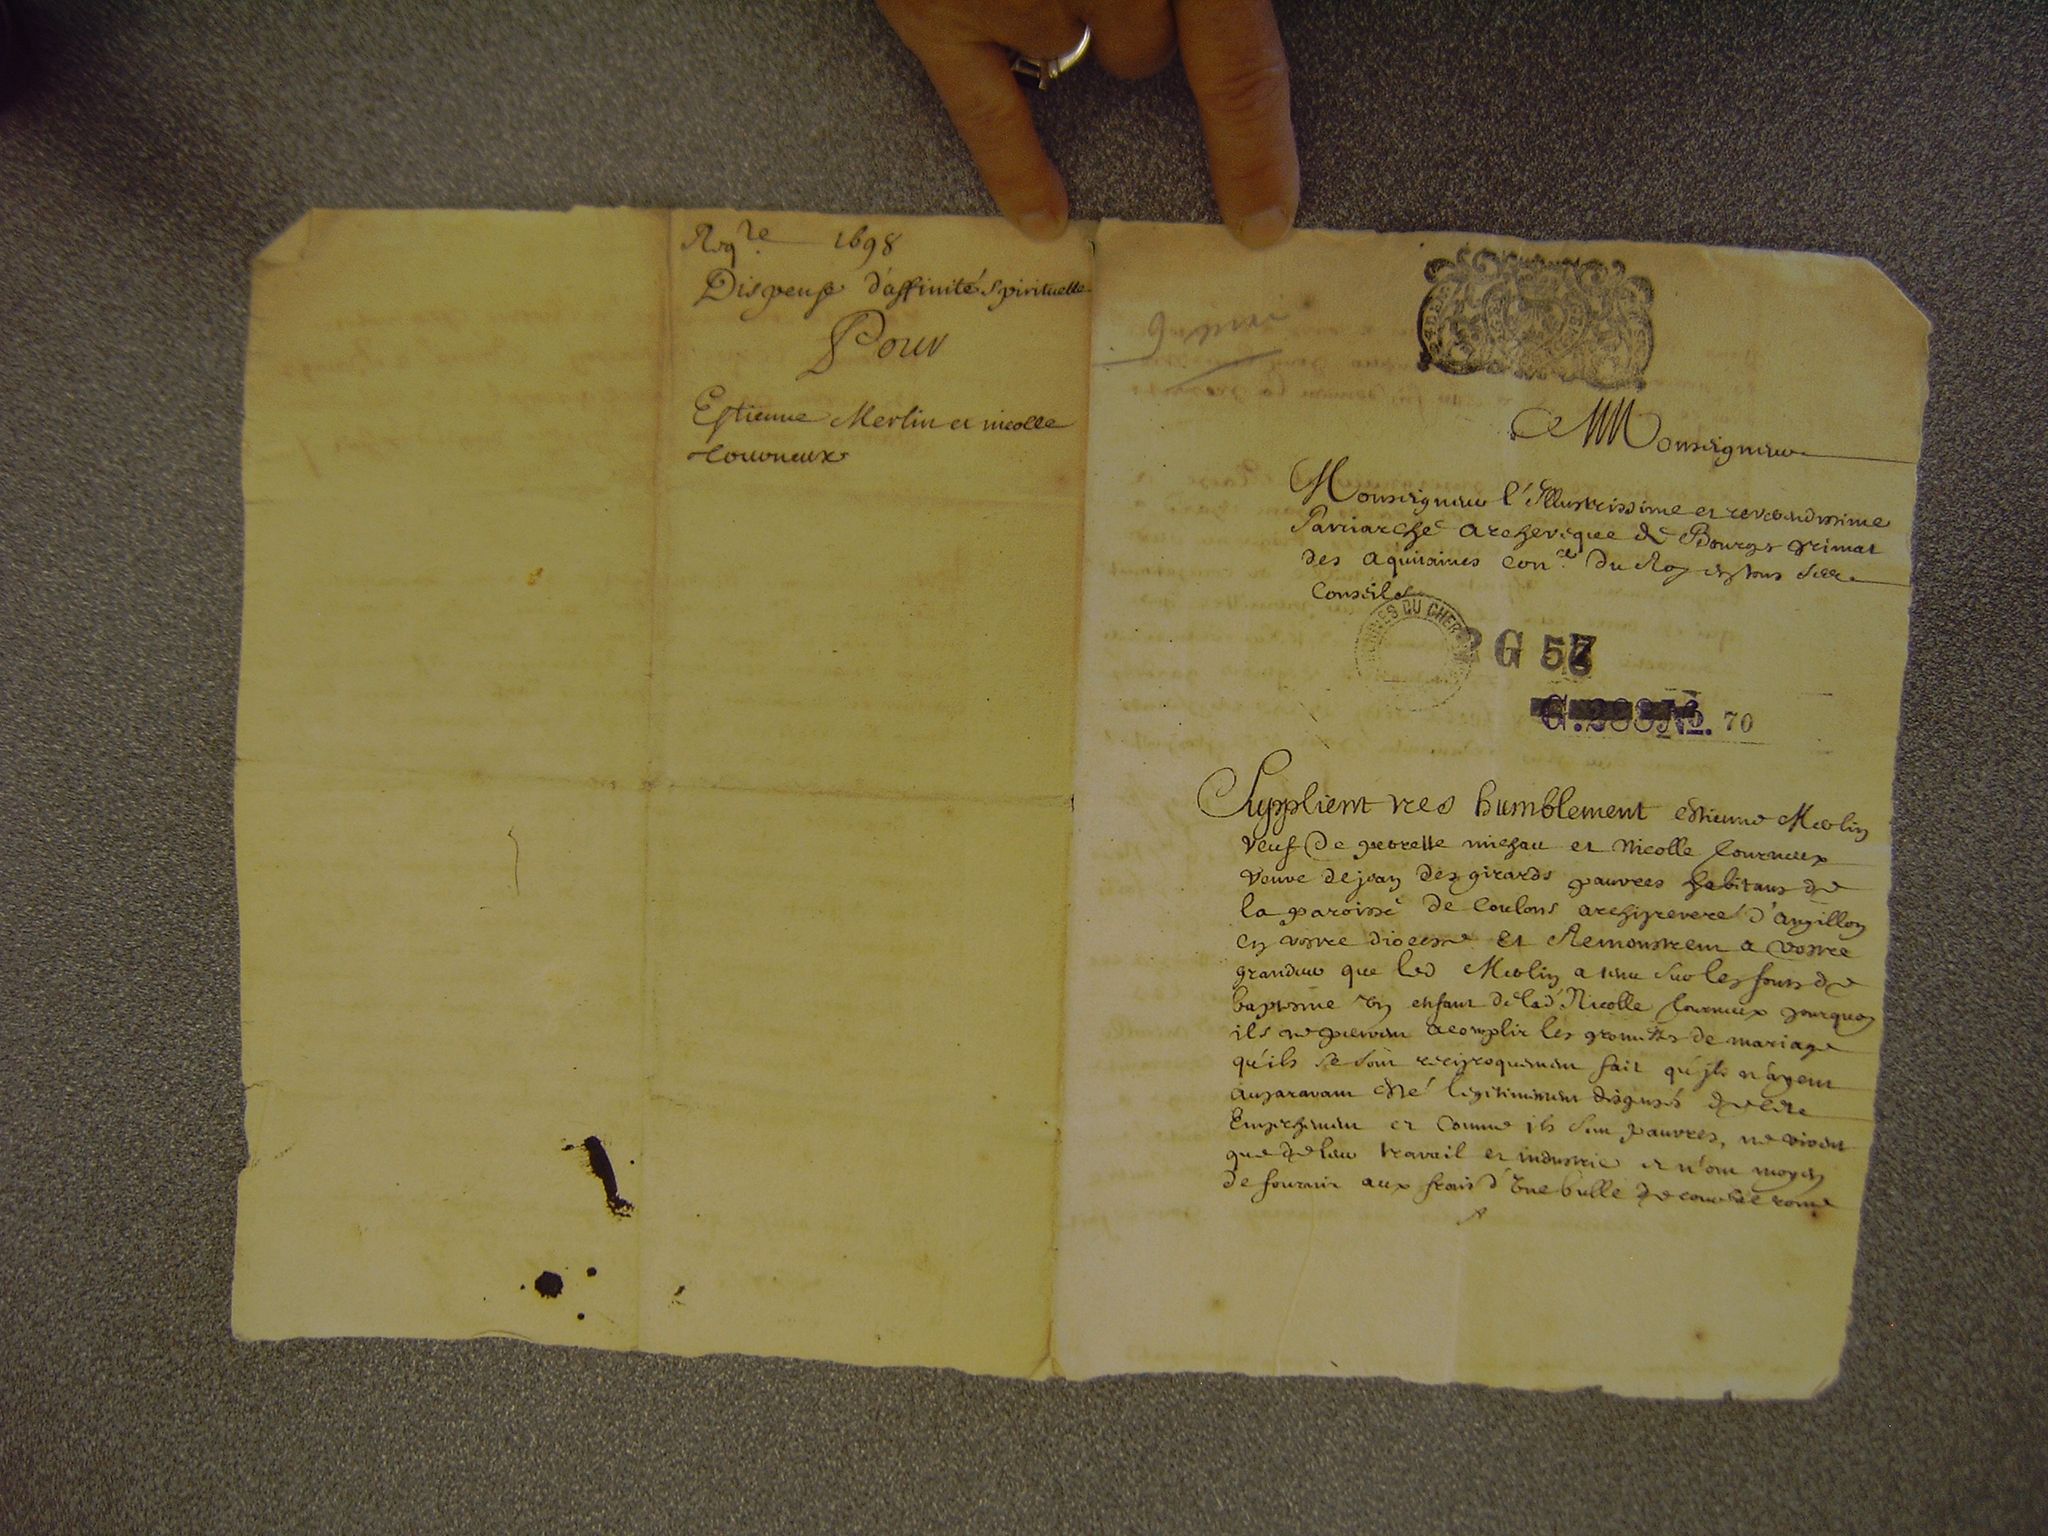 Reqre 1698
Dispense d'affinité spirituelle
Pour
Estienne Merlin et nicolle
tourneux
9 mai
A Monseigneur
Monseigneur l'Illustrissime et reverendissime
Patriarche archevêque de Bourges primat
des aquitaines coner du Roy en tous ses
Conseils
ARCHIVES DU CHER
2 G 57
G. 288 No. 70
Supplient tres humblement estienne Merlin
veuf de perrette michau et Nicolle tourneux
veuve de jean des girards pauvres habitans de
la paroisse de Coulons archiprevere d'angillon
en vostre diocese Et Remonstrent a vostre
grandeur que led Merlin a tenu sur les fonts de
baptesme un enfant de lad Nicolle tourneux pourquoy
ils ne peuvent acomplir les promesses de mariage
qu'ils se sont reciproquement fait qu'ils n'ayent
auparavant esté legitimement dispensés de cet
Empeschement et comme ils sont pauvres, ne vivent
que de leur travail et industrie et n'ont moyen
de fournir aux frais d'une bulle de cour de rome